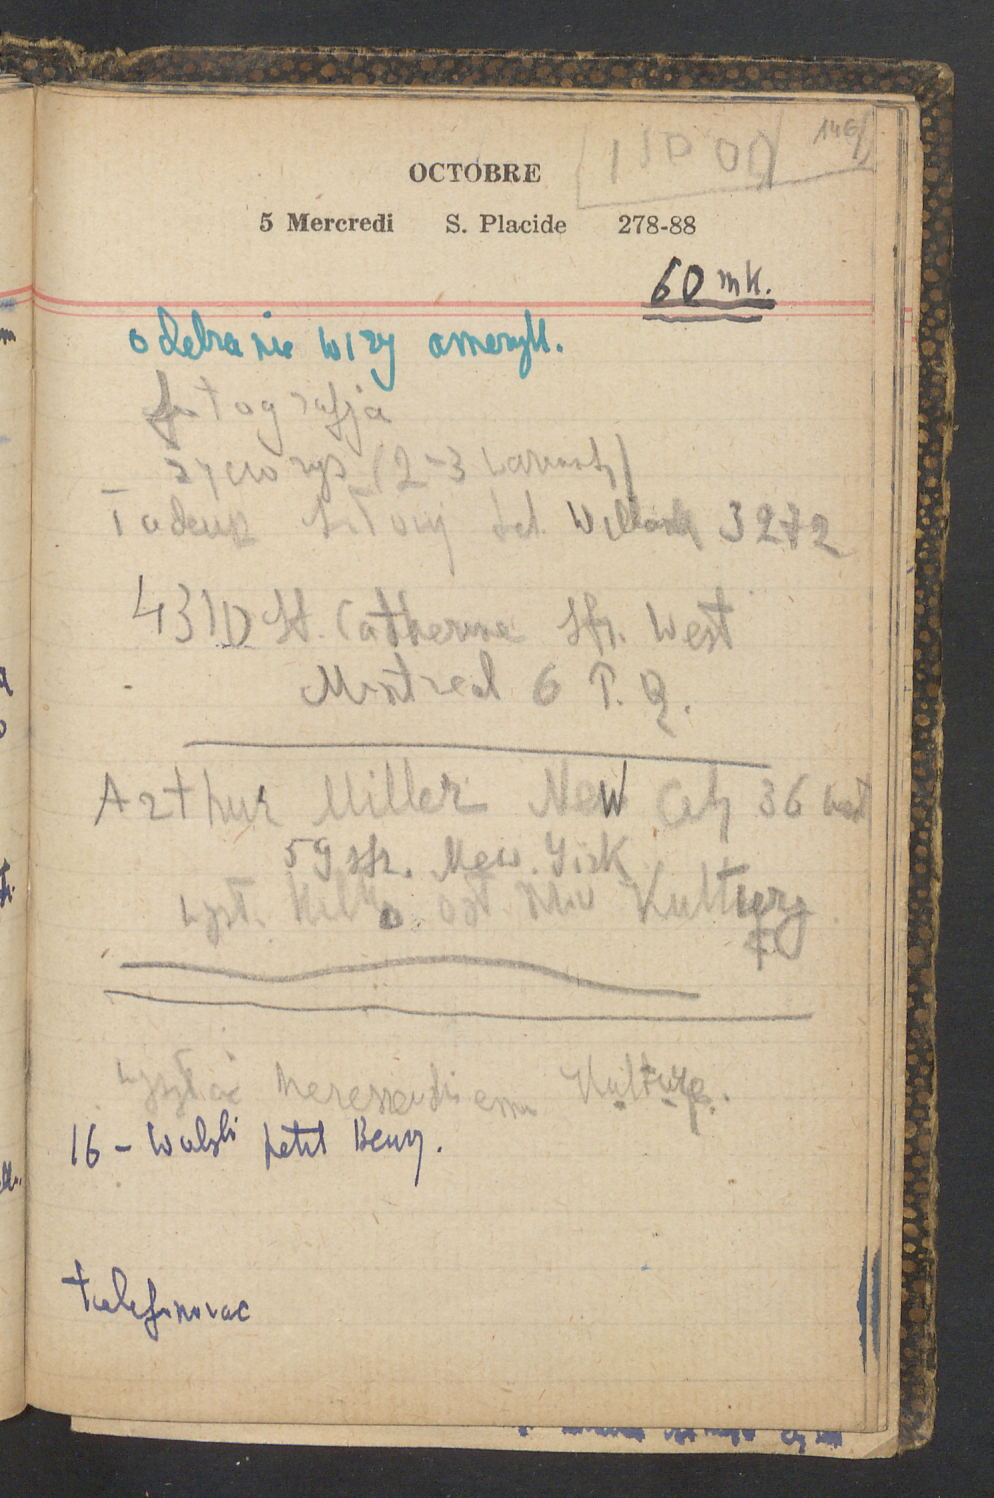 146
OCTOBRE
5 Mercredi S. Placide 278-88
60 mk.
odebranie wizy ameryk.
fotografja
życiorys (2-3 warianty)
Tadeusz tel. 3272
4310 St. Catherine str. West
Montreal 6 P. Q.
Arthur Miller New City 36 West
59 str. New. York
Kultury
wysłać Kulturę.
16 - Walski petit Beurg.
telefonować